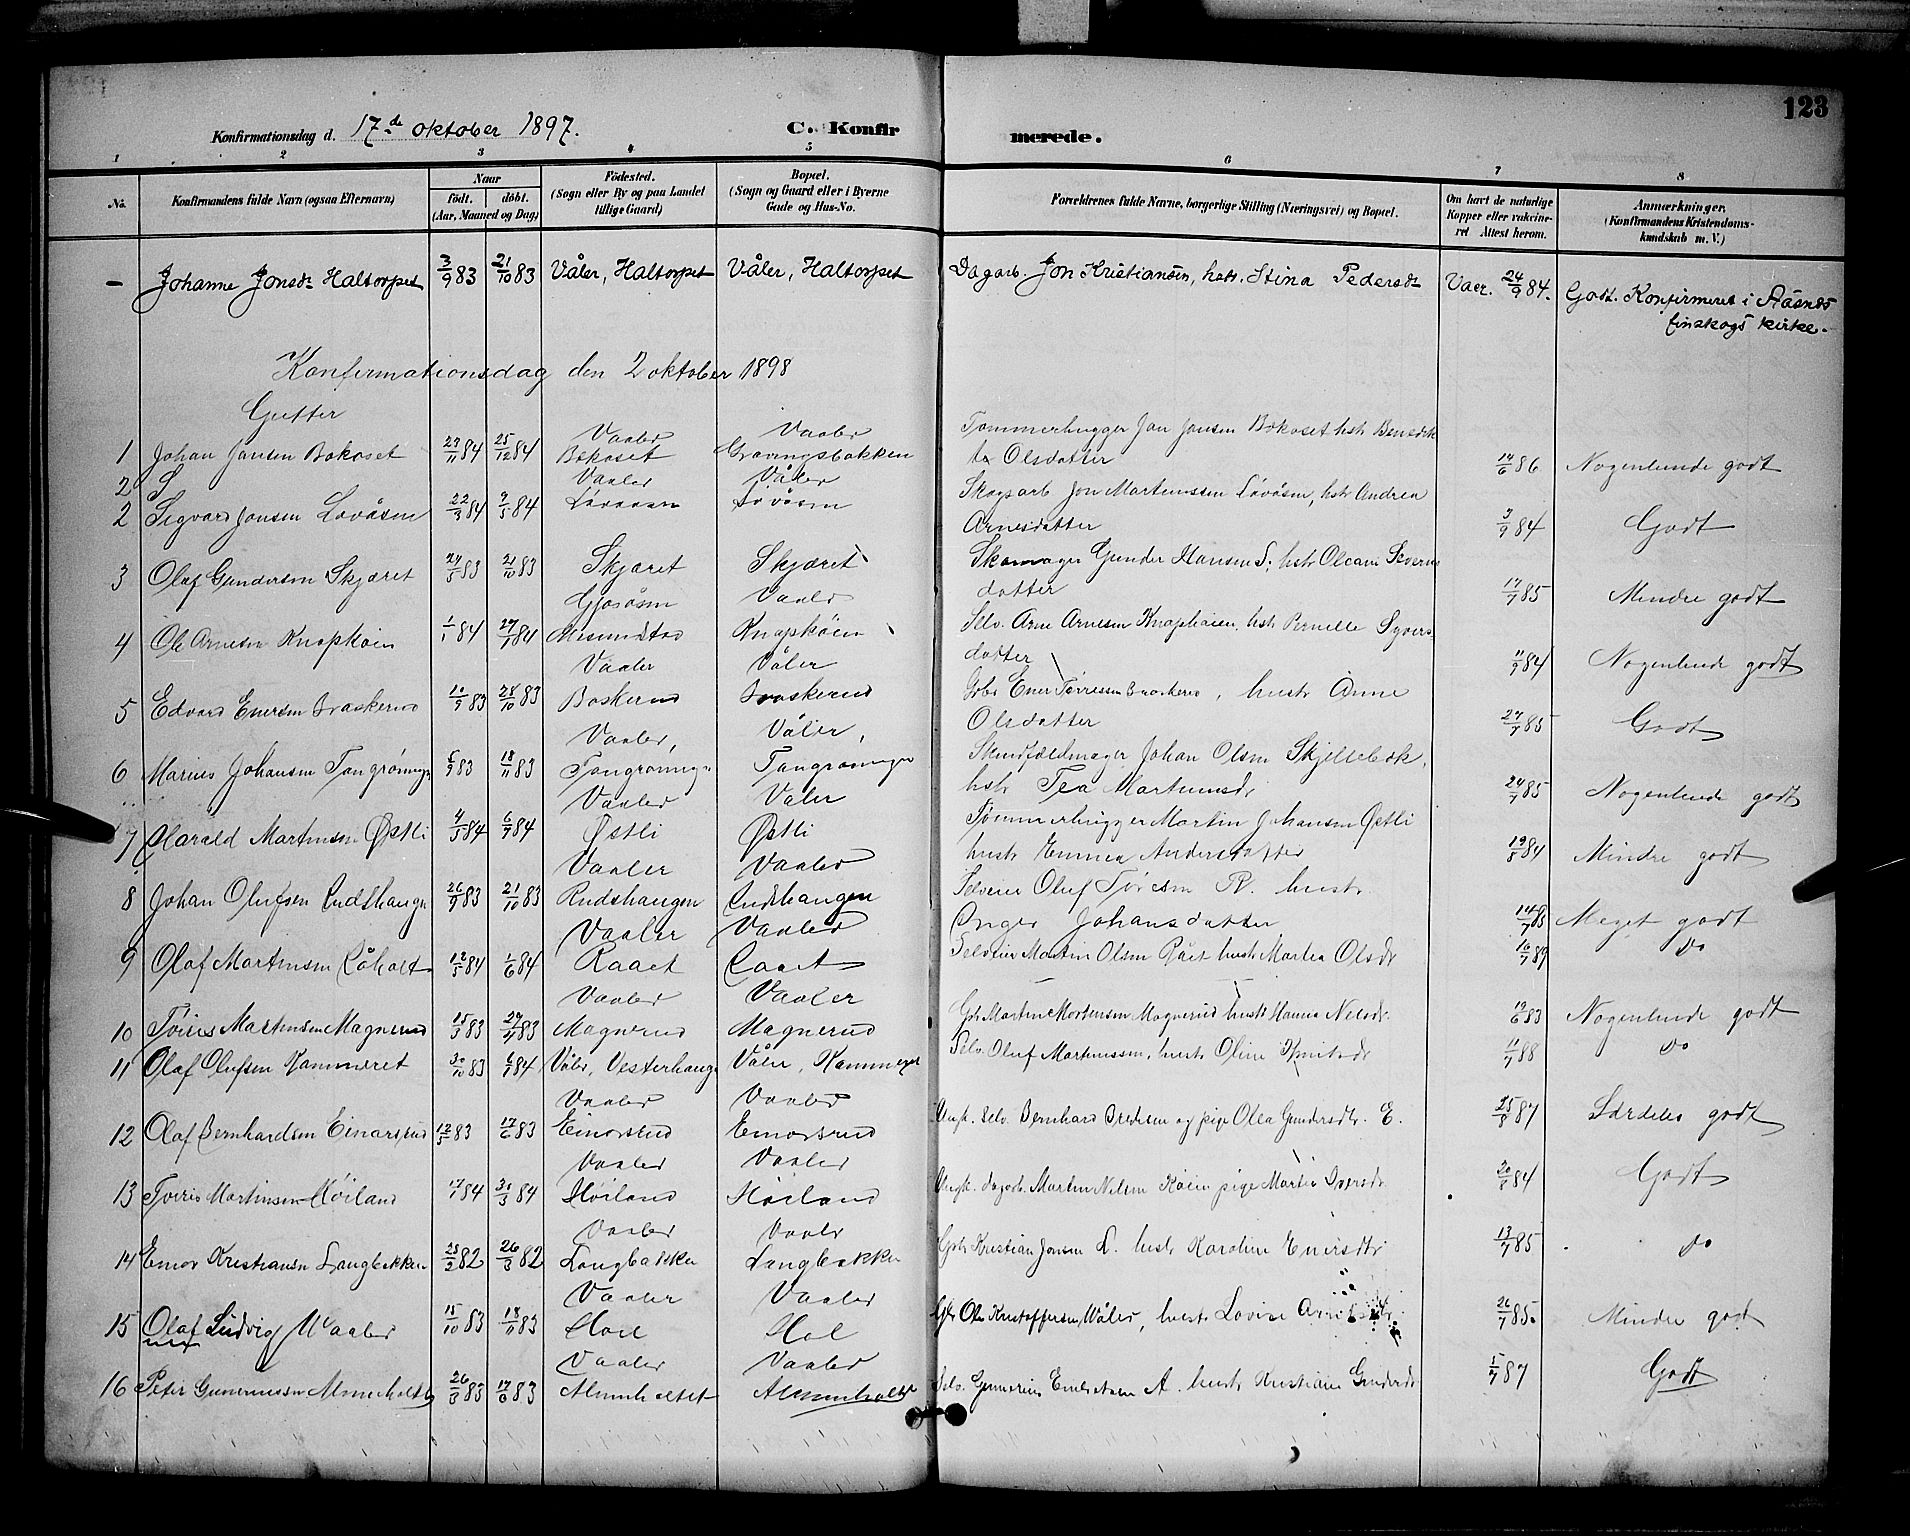 123
Konfirmationsdag d. 17de oktober 1897. C. Konfirmerede.
1 2 3 4 5 6 7 8
No. Konfirmandens fulde Navn (ogsaa Efternavn) Naar födt. döbt. (Aar, Maaned og Dag) Födested. (Sogn eller By og paa Landet tillige Gaard) Bopæl. (Sogn og Gaard eller i Byerne Gade og Hus-No. Forældrenes fulde Navne, borgerlige Stilling (Næringsvei) og Bopæl. Om havt de naturlige Kopper eller vakcineret Attest herom. Anmærkninger, (Konfirmandens Kristendomskundskab m. V.)
- Johanne Jonsdr Haltorpet 3/9 83 21/10 83 Våler, Haltorpet Våler, Haltorpet Dagarb. Jon Kristiansen, hstr. Stina Pedersdr Vacc. 24/9 84. Godt. Konfirmeret i Aasnes
finskogs kirke.
Konfirmationsdag den 2 oktober 1898
Gutter
1 Johan Jansen Bokaset 27/11 84 25/12 84 Vaaler Bokaset Vaaler Gravingsbakken Tømmerhugger Jan Jansen Bokaset hstr Benedik
ta Olsdatter 14/6 86 Nogenlunde godt
2 S
2 Sigvard Jansen Lovåsen 22/3 84 9/5 84 Vaaler Lovaasen Våler Lovåsen Skogsarb Jon Martinssen Lovåsen, hstr Andrea
Arnesdatter 3/9 84 Godt
3 Olaf Gundersen Skjæret 24/5 83 21/10 83 Skjæret Skjæret Skomager Gunder Hansen S, hstr Oleani Severin
datter 17/7 85 Mindre godt
4 Ole Arnesen Knapkøien 1/1 84 27/1 84 Gjøsåsen Vaaler Knapkøien Selv. Arne Arnesen Knapkøien, hstr Pernelle Syvers
datter 11/9 84 Nogenlunde godt
5 Edvard Enersen Braskerud 10/9 83 28/10 83 Vaaler Baskerud Våler Braskerud Gbr Ener Tørresen Braskerud, hustr Anne
Olsdatter 27/7 85 Godt
6 Marius Johansen Tangrønningen 6/9 83 18/11 83 Vaaler, Tangrønningen Våler, Tangrønningen Skindfældmager Johan Olsen Skjellebæk,
hstr Tea Martinusdr 24/7 85 Nogenlunde godt
7 Harald Martinsen Østli 4/5 84 6/7 84 Vaaler Østli Våler Østli Tømmerhugger Martin Johansen Østli
hustr Emma Andersdatter 19/8 84 Mindre godt
8 Johan Olufsen Rudshaugen 26/9 83 21/10 83 Vaaler Rudshaugen Vaaler Rudshaugen Selveier Oluf Tøresen R. hustr
Inger Johansdatter 14/7 85 Meget godt
9 Olaf Martinsen Råholt 12/5 84 1/6 84 Vaaler Raaet Vaaler Raaet Selveier Martin Olsen Rået hustr Martea Olsdr 16/7 89 do
10 Tøris Martinsen Magnerud 15/3 83 29/4 83 Vaaler Magnerud Vaaler Magnerud Gbr Martin Mortensen Magnerud hustr Hanna Nelsdr 19/6 83 Nogenlunde godt
11 Olaf Olufsen Kammeret 30/10 83 6/1 84 Våler, Vesterhaug Våler, Kammeret Selv. Oluf Martinussen, hustr Oline Knutsdr 11/7 88 do
12 Olaf Bernhardsen Einarsrud 12/5 83 17/6 83 Vaaler Einarsrud Vaaler Einarsrud Ungk. Selv. Bernhard Bredesen og pige Olea Gundersdtr. E. 25/8 87 Særdeles godt
13 Torris Martinsen Høiland 17/1 84 30/3 84 Vaaler Høiland Vaaler Høiland Ungk. dagarb. Martin Nelsen Køien pige Martia Iversdr 20/8 84 Godt
14 Emor Kristiansen Langbakken 25/2 82 26/3 82 Vaaler Langbakken Vaaler Langbakken Gbr Kristian Jonsen L. hustr Karoline Enersdtr 13/7 85 do
15 Olaf Ludvig Waaler 15/10 83 18/11 83 Vaaler Hoel Vaaler Hol Gbr Ole Kristoffersen Wåler, hustr Lovise 26/7 85. Mindre godt
16 Peter Gunerussen Almenholtet 26/3 83 17/6 83 Vaaler Almenholtet Vaaler Almenholtet Selv. Gunerius A. hustr Kristiane Gundersdr 5/7 87 Godt